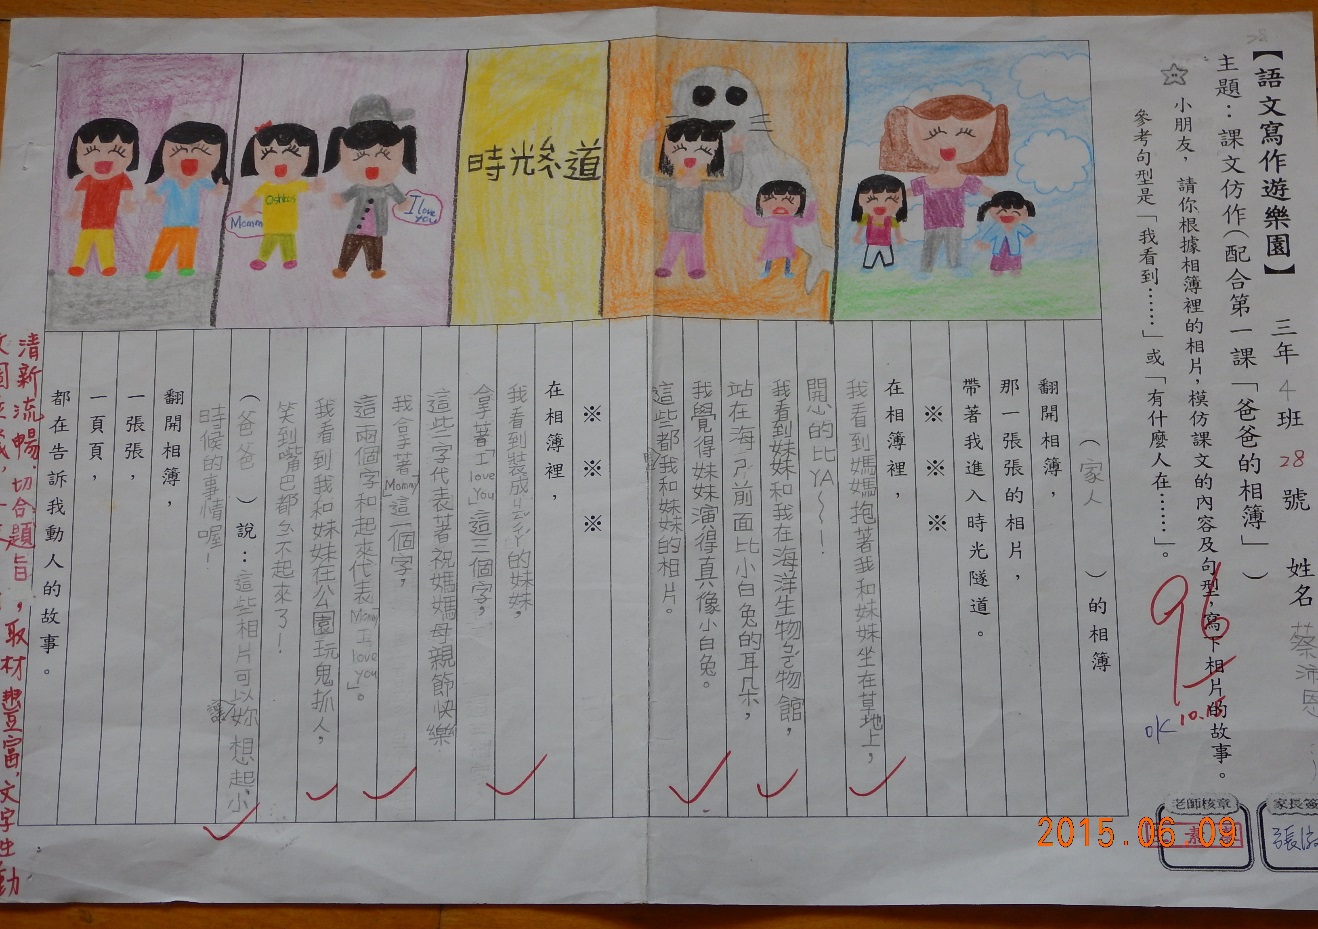 【語文寫作遊樂園】 三年 4 班 28 號 姓名 蔡沛恩
主題：課文仿作（配合第一課「爸爸的相簿」）
小朋友，請你根據相簿裡的相片，模仿課文的內容及句型，寫下相片的故事。
參考句型是「我看到……」或「有什麼人在……」。
96
10.
OK
老師核章
家長簽
時光ㄙㄨㄟˋ道
Oshkos
Mommy
I love you
（家人）的相簿
翻開相簿，
那一張張的相片，
帶著我進入時光隧道。
※ ※ ※
在相簿裡，
我看到媽媽抱著我和妹妹坐在草地上，
開心的比YA~~！
我看到妹妹和我在海洋生物ㄅㄛˊ物館，
站在海ㄕ前面比小白兔的耳朵，
我覺得妹妹演得真像小白兔。
這些都我和妹妹的相片。
※ ※ ※
在相簿裡，
我看到裝成ㄕㄠˋㄧㄝˊ的妹妹，
拿著「I love You」這三個字，
這些字代表著祝媽媽母親節快樂
我拿著「Mommy」這一個字，
這兩個字和起來代表「Mommy I love you」。
我看到我和妹妹在公園玩鬼抓人，
笑到嘴巴都ㄅㄧˋ不起來了！
（爸爸）說：這些相片可以讓妳想起小
時候的事情喔！
翻開相簿，
一張張，
一頁頁，
都在告訴我動人的故事。
清新流暢，切合題旨，取材豐富，文字生動
2015.06.09